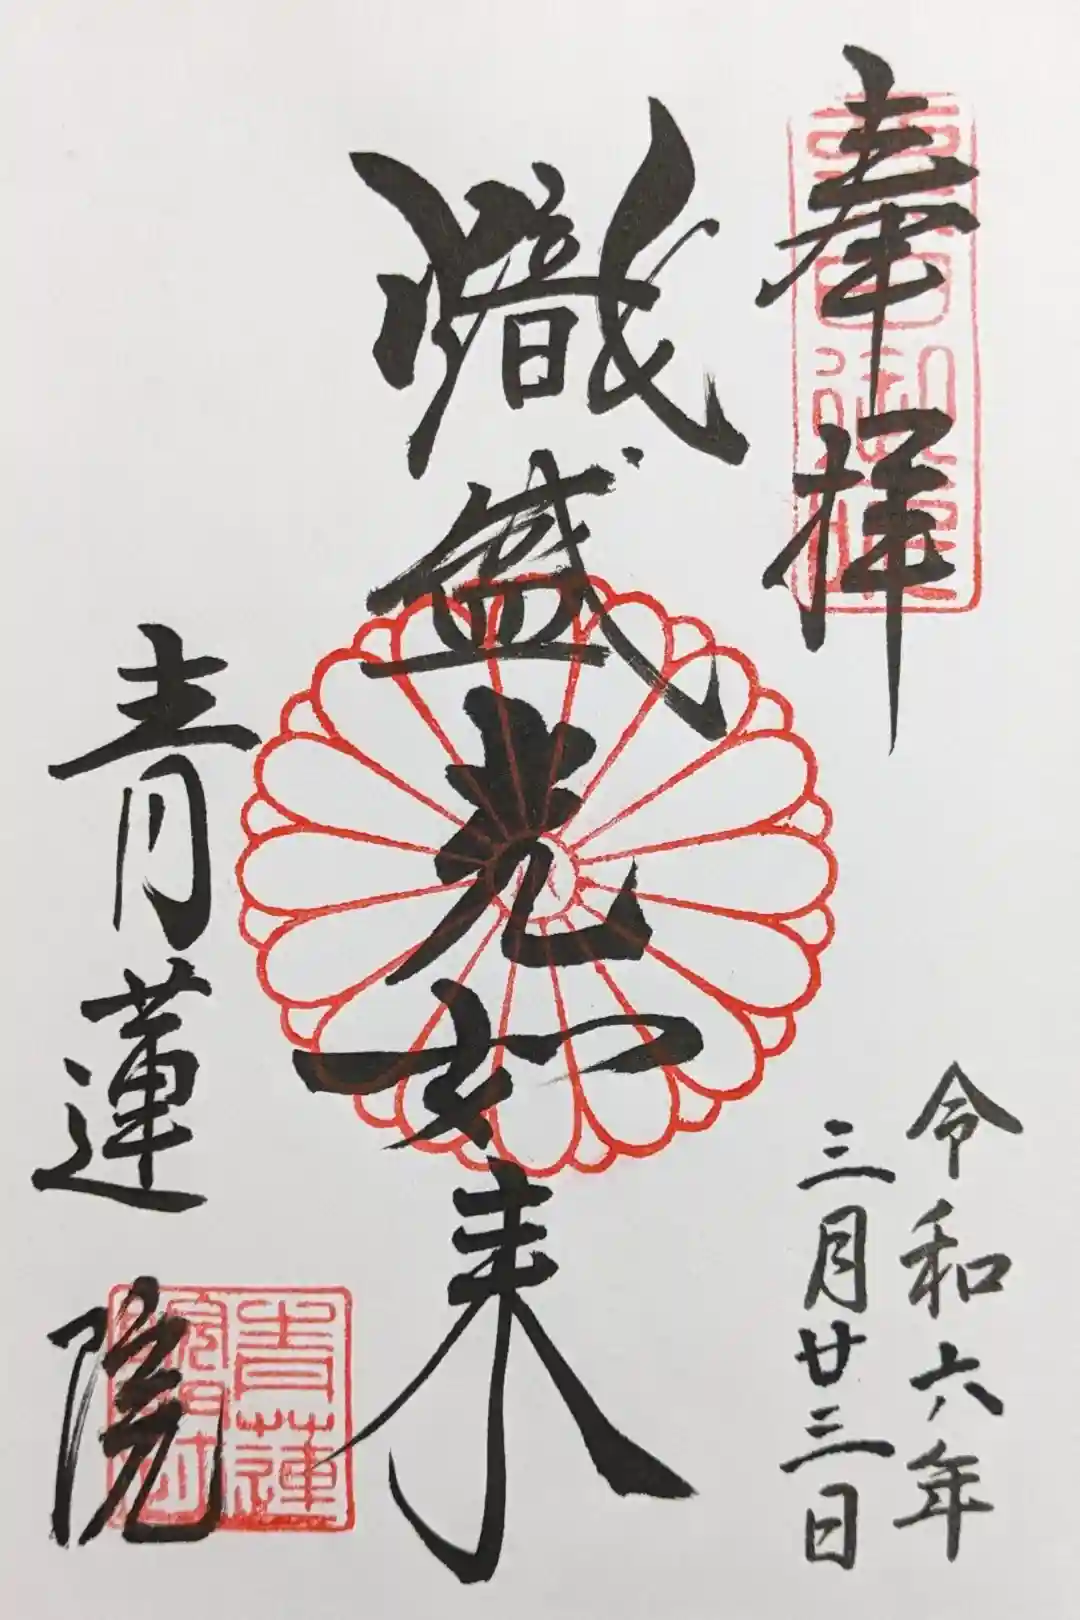 奉拝
令和六年
三月廿三日
熾盛光如来
青蓮院
青蓮
院門跡